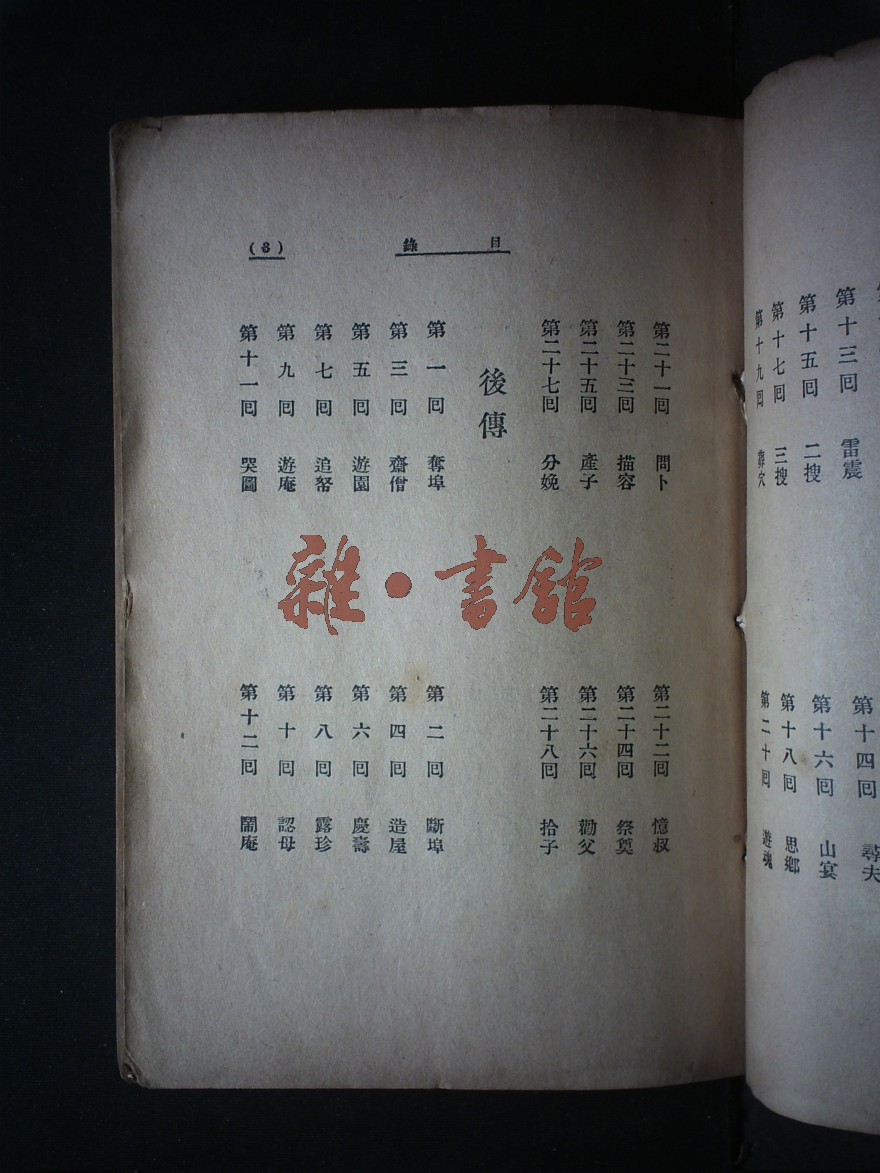 目錄
(8)
第二十一回 問卜
第二十二回 憶叔
第二十三回 描容
第二十四回 祭奠
第二十五回 產子
第二十六回 勸父
第二十七回 分娩
第二十八回 拾子
後傳
第一回 奪埠
第二回 斷埠
第三回 齋僧
第四回 造屋
第五回 遊園
第六回 慶壽
第七回 追帑
第八回 露珍
第九回 遊庵
第十回 認母
第十一回 哭圖
第十二回 鬧庵
雜·書館
第十三回 雷震
第十四回 尋夫
第十五回 二搜
第十六回 山宴
第十七回 三搜
第十八回 思鄉
第十九回 葬穴
第二十回 遊魂